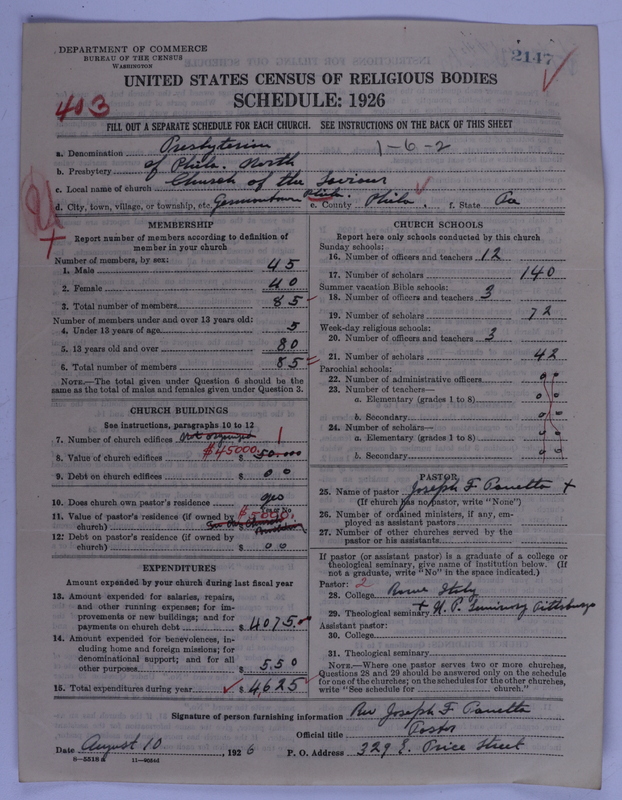 DEPARTMENT OF COMMERCE
BUREAU OF THE CENSUS
WASHINGTON
2147
UNITED STATES CENSUS OF RELIGIOUS BODIES
SCHEDULE: 1926
403
FILL OUT A SEPARATE SCHEDULE FOR EACH CHURCH. SEE INSTRUCTIONS ON THE BACK OF THIS SHEET
a. Denomination Presbyterian 1-6-2
b. Presbytery of Phila. North
c. Local name of church Church of the Saviour
d. City, town, village, or township, etc. Germantown Phila. e. County Phila. f. State Pa
MEMBERSHIP
Report number of members according to definition of member in your church
Number of members, by sex:
1. Male 45
2. Female 40
3. Total number of members 85
Number of members under and over 13 years old:
4. Under 13 years of age 5
5. 13 years old and over 80
6. Total number of members 85
NOTE.—The total given under Question 6 should be the same as the total of males and females given under Question 3.
CHURCH BUILDINGS
See instructions, paragraphs 10 to 12
7. Number of church edifices 1
8. Value of church edifices $45000 $ 50.000
9. Debt on church edifices $ 00
10. Does church own pastor's residence yes
Yes or No
11. Value of pastor's residence (if owned by church) $5000.
12. Debt on pastor's residence (if owned by church) $ 00
EXPENDITURES
Amount expended by your church during last fiscal year
13. Amount expended for salaries, repairs, and other running expenses; for improvements or new buildings; and for payments on church debt $ 4075.00
14. Amount expended for benevolences, including home and foreign missions; for denominational support; and for all other purposes $ 550
15. Total expenditures during year $ 4,625
CHURCH SCHOOLS
Report here only schools conducted by this church
Sunday schools:
16. Number of officers and teachers 12
17. Number of scholars 140
Summer vacation Bible schools:
18. Number of officers and teachers 3
19. Number of scholars 72
Week-day religious schools:
20. Number of officers and teachers 3
21. Number of scholars 42
Parochial schools:
22. Number of administrative officers 0 0
23. Number of teachers—
a. Elementary (grades 1 to 8) 0 0
b. Secondary 0 0
24. Number of scholars—
a. Elementary (grades 1 to 8) 0 0
b. Secondary 0 0
PASTOR
25. Name of pastor Joseph F. Panetta +
(If church has no pastor, write "None")
26. Number of ordained ministers, if any, employed as assistant pastors
27. Number of other churches served by the pastor or his assistants
If pastor (or assistant pastor) is a graduate of a college or theological seminary, give name of institution below. (If not a graduate, write "No" in the space indicated.)
Pastor: 2
28. College Rome Italy
29. Theological seminary + U. P. Seminary Pittsburgh
Assistant pastor:
30. College
31. Theological seminary
NOTE.—Where one pastor serves two or more churches, Questions 28 and 29 should be answered only on the schedule for one of the churches; on the schedules for the other churches, write "See schedule for church."
Signature of person furnishing information Rev Joseph F. Panetta
Official title Pastor
Date August 10, 1926 P. O. Address 329 E. Price Street
8-5518 a 11-9054d